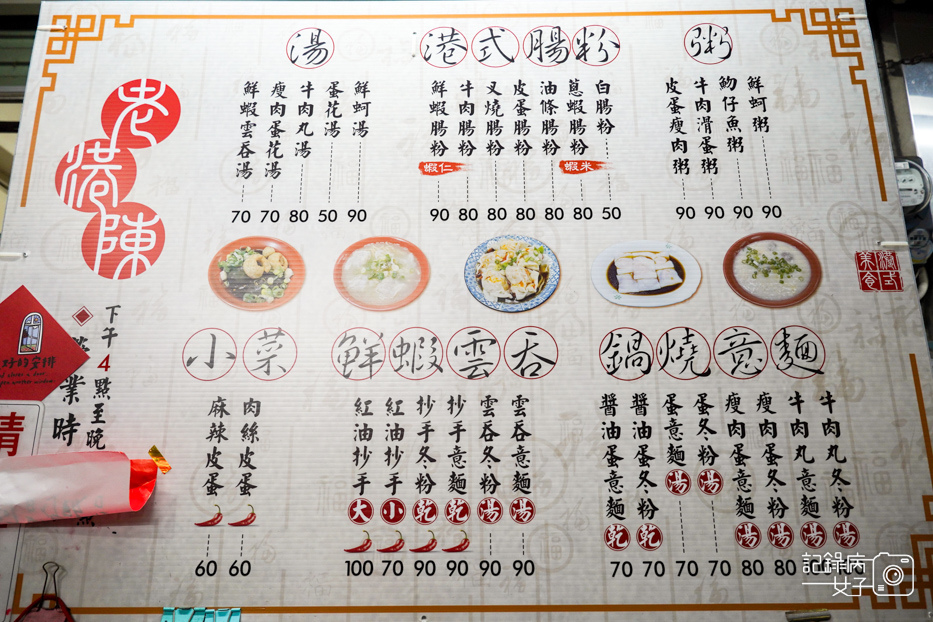 老港陳
港式美食
湯
鮮蝦雲吞湯 70
瘦肉蛋花湯 70
牛肉丸湯 80
蛋花湯 50
鮮蚵湯 90
港式腸粉
鮮蝦腸粉 蝦仁 90
牛肉腸粉 80
叉燒腸粉 80
皮蛋腸粉 80
油條腸粉 80
蔥蝦腸粉 蝦米 80
白腸粉 50
粥
皮蛋瘦肉粥 90
牛肉滑蛋粥 90
魩仔魚粥 90
鮮蚵粥 90
下午4點至晚
業時
好的安排
情
小菜
麻辣皮蛋 60
肉絲皮蛋 60
鮮蝦雲吞
紅油抄手 大 100
紅油抄手 小 70
抄手冬粉 乾 90
抄手意麵 乾 90
雲吞冬粉 湯 90
雲吞意麵 湯 90
鍋燒意麵
醬油蛋意麵 乾 70
醬油蛋冬粉 乾 70
蛋意麵 湯 70
蛋冬粉 湯 70
瘦肉蛋意麵 湯 80
瘦肉蛋冬粉 湯 80
牛肉丸意麵 湯
牛肉丸冬粉 湯
記錄病女子